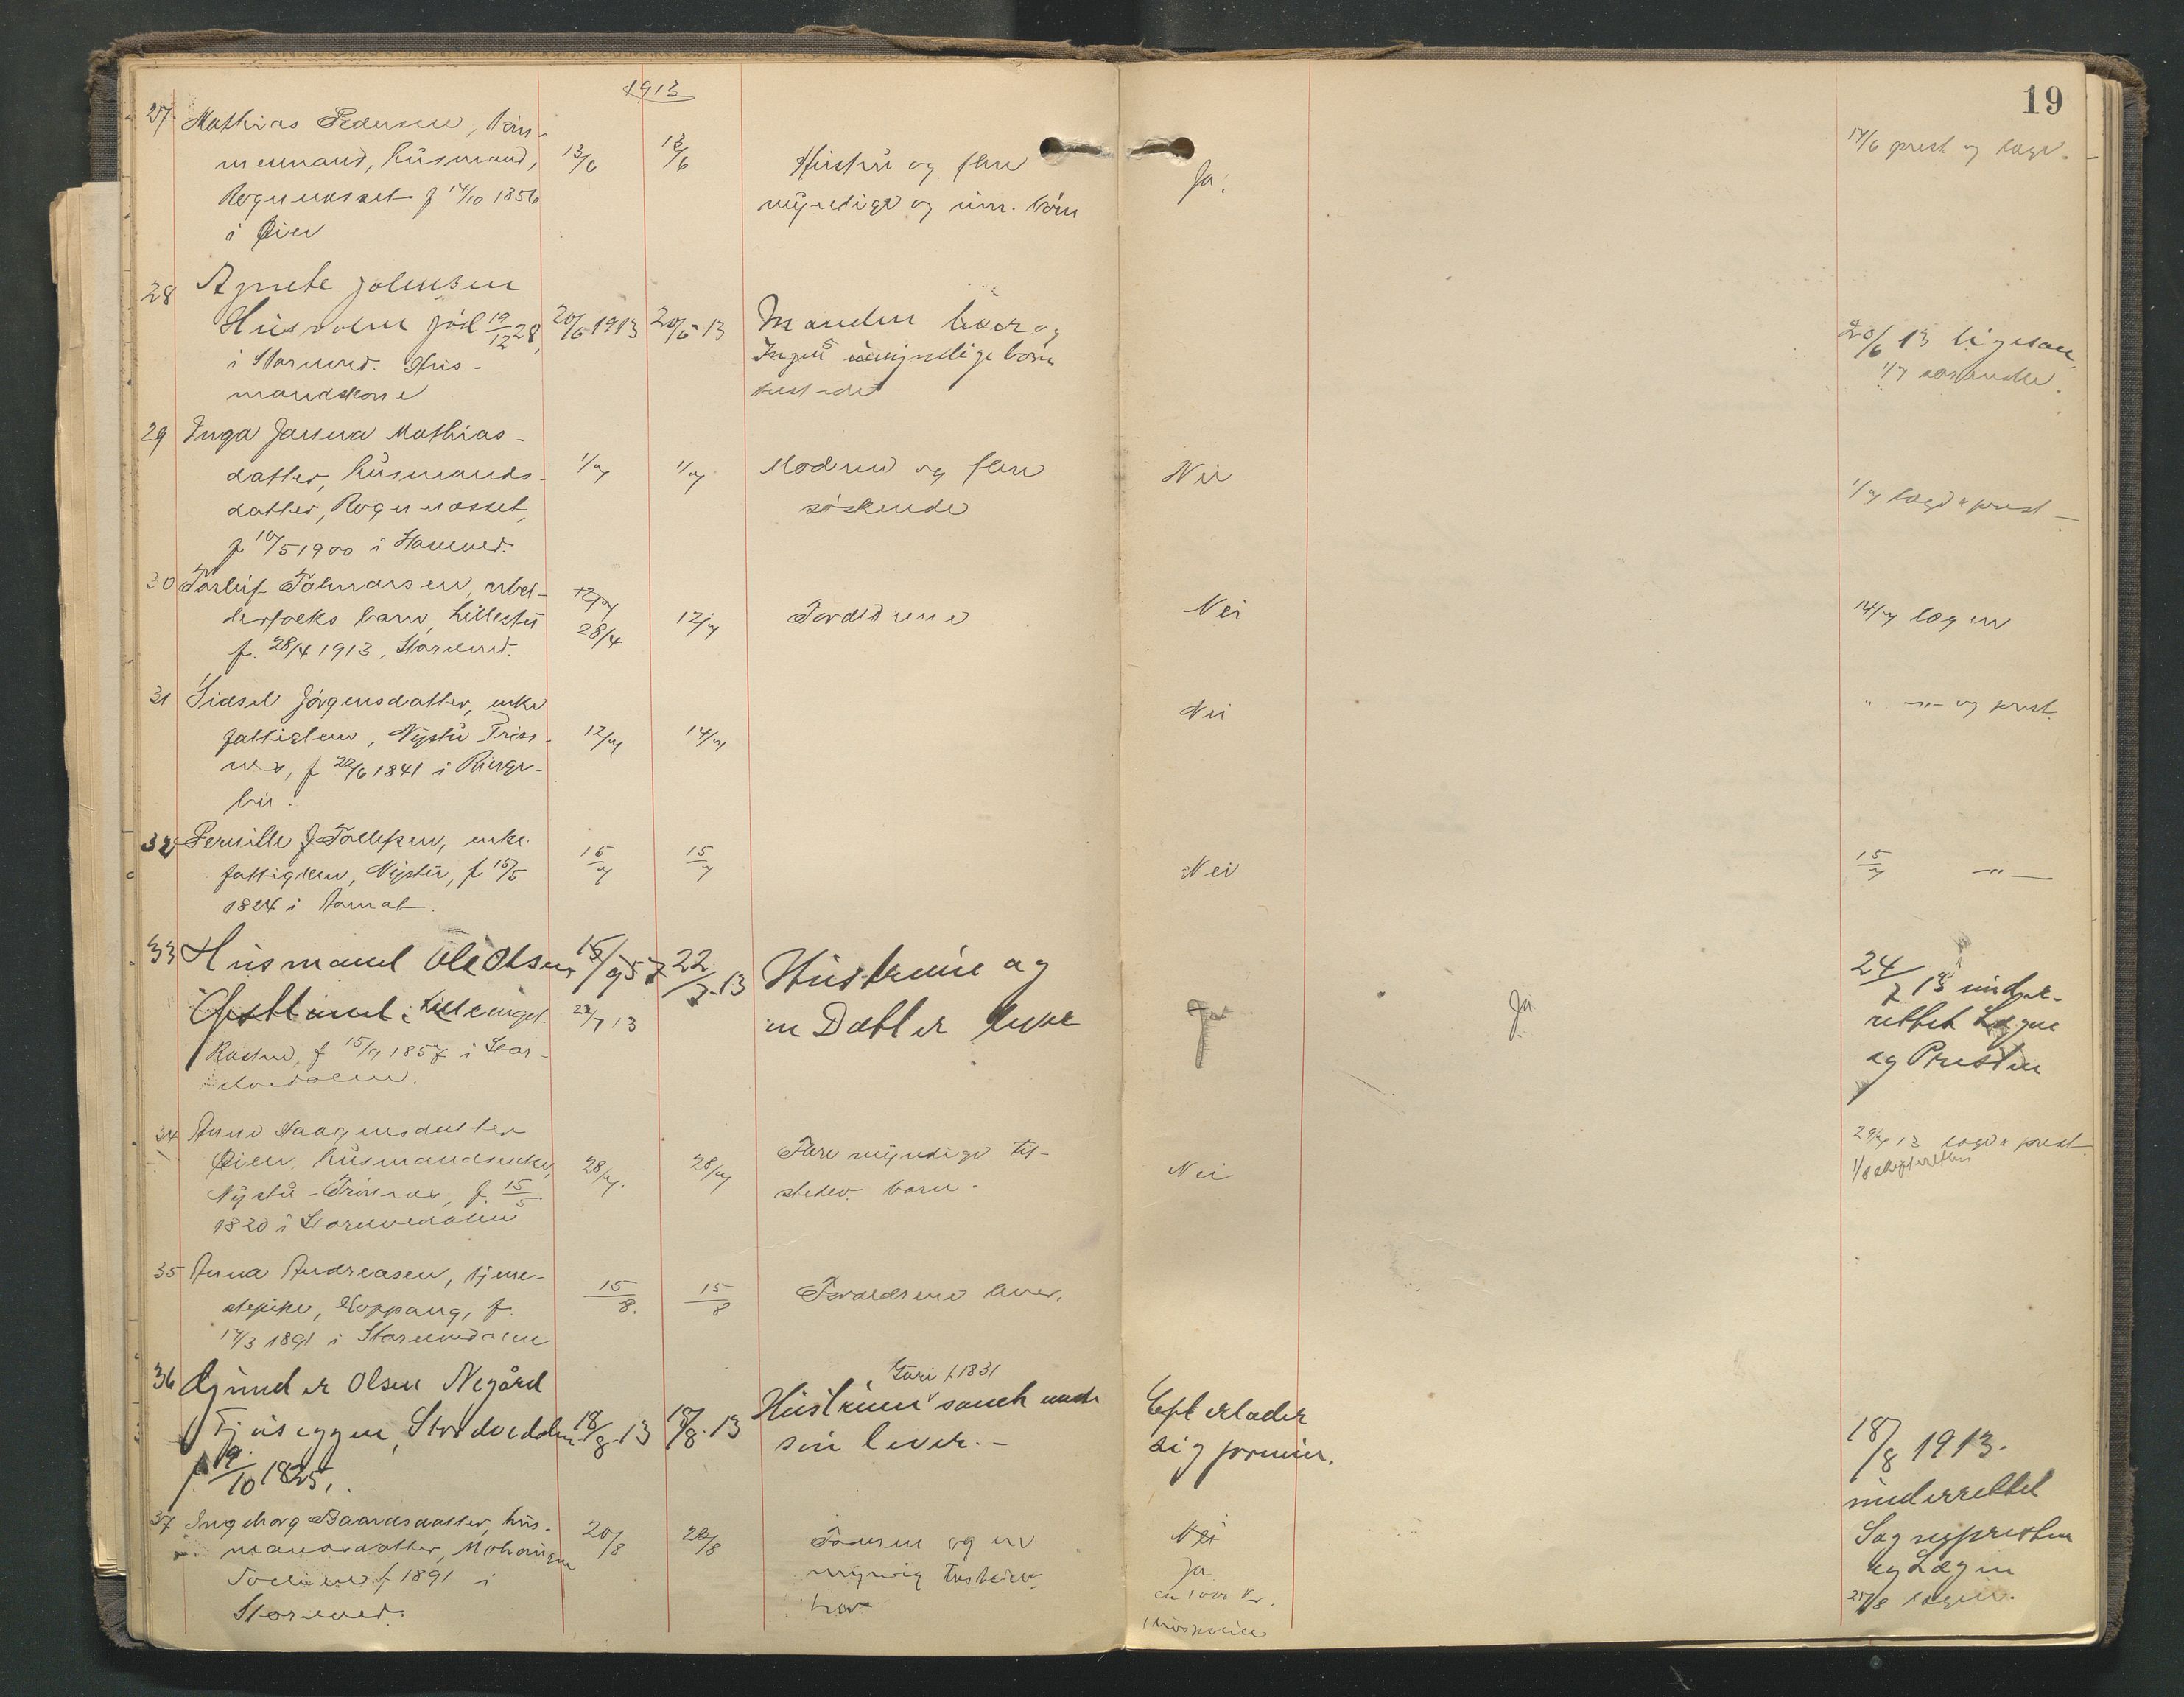 1913
19
27. Mathias Pedersen, tøm-
mermand, husmand,
Rognnesset f 14/10 1856
i Øier
13/6
13/6
Hustru og flere
myndige og um. børn
Ja.
17/6 prest og læge.
28 Agnete Johnsen
Husvolen fød 19/12 28,
i Storelved. Hus-
mandskone
20/6 1913
20/6 13
Manden lever og
Ingen umyndige børn
tilstede
20/6 13 ligesaa
1/7
29 Inga Jarina Mathias-
datter, husmands-
datter, Rognnesset,
f 10/5 1900 i Storelved.
1/7
1/7
Moderen og flere
søskende
Nei
1/7 læge & prest
30 Torleif Tolmarsen, arbei-
derfolks barn, Lillestu
f. 28/4 1913, Storelvd.
12/7
28/4
12/7
Forældrene
Nei
14/7 lægen
31 Sidsel Jørgensdatter, enke
fattiglem, Nystu Triss-
nes, f 22/6 1841 i Ringe-
bu.
12/7
14/7
Nei
" -"- og prest.
32 Pernille J Tollefsen, enke.
fattiglem, Nystu, f 15/5
1824 i Aamot.
15/7
15/7
Nei
15/7 -"-
33 Husmand Ole Olsen
Lilleenget
Kastad, f 15/9 1857 i Stor-
elvedalen.
15/9 57
22/7 13
22/7-13
Hustruen og
en Datter lever
Ja
Ja
24/7 13 under-
rettet Lægen
og Presten
34 Anne Haagensdatter
Øien, husmandsenke,
Nystu-Trisnes, f. 15/5
1820 i Storelvedalen
28/7.
28/7
Flere myndige til-
stedev. barn.
Nei
29/7 13 læge & prest.
1/8 skifteretten
35 Anna Andreasen, tjene-
stepike, Koppang, f.
17/3 1891 i Storelvedalen
15/8.
15/8
Forældrene lever.
36 Gunder Olsen Negård
Fjøseggen, Storelvedalen
f 19/10 1825.
18/8-13
18/8-13
Guri f. 1831
Hustruen samt
søn lever.-
Efterlader
sig formue.
18/8 1913.
underrettet
Sognepresten
og Lægen
37 Ingeborg Baardsdatter, hus-
mandsdatter,
f 1891 i
Storelved.
20/8
20/8
Faderen og en
myndig tilstedev.
bror
Nei
Ja
ca 1000 Kr.
25/8 lægen.